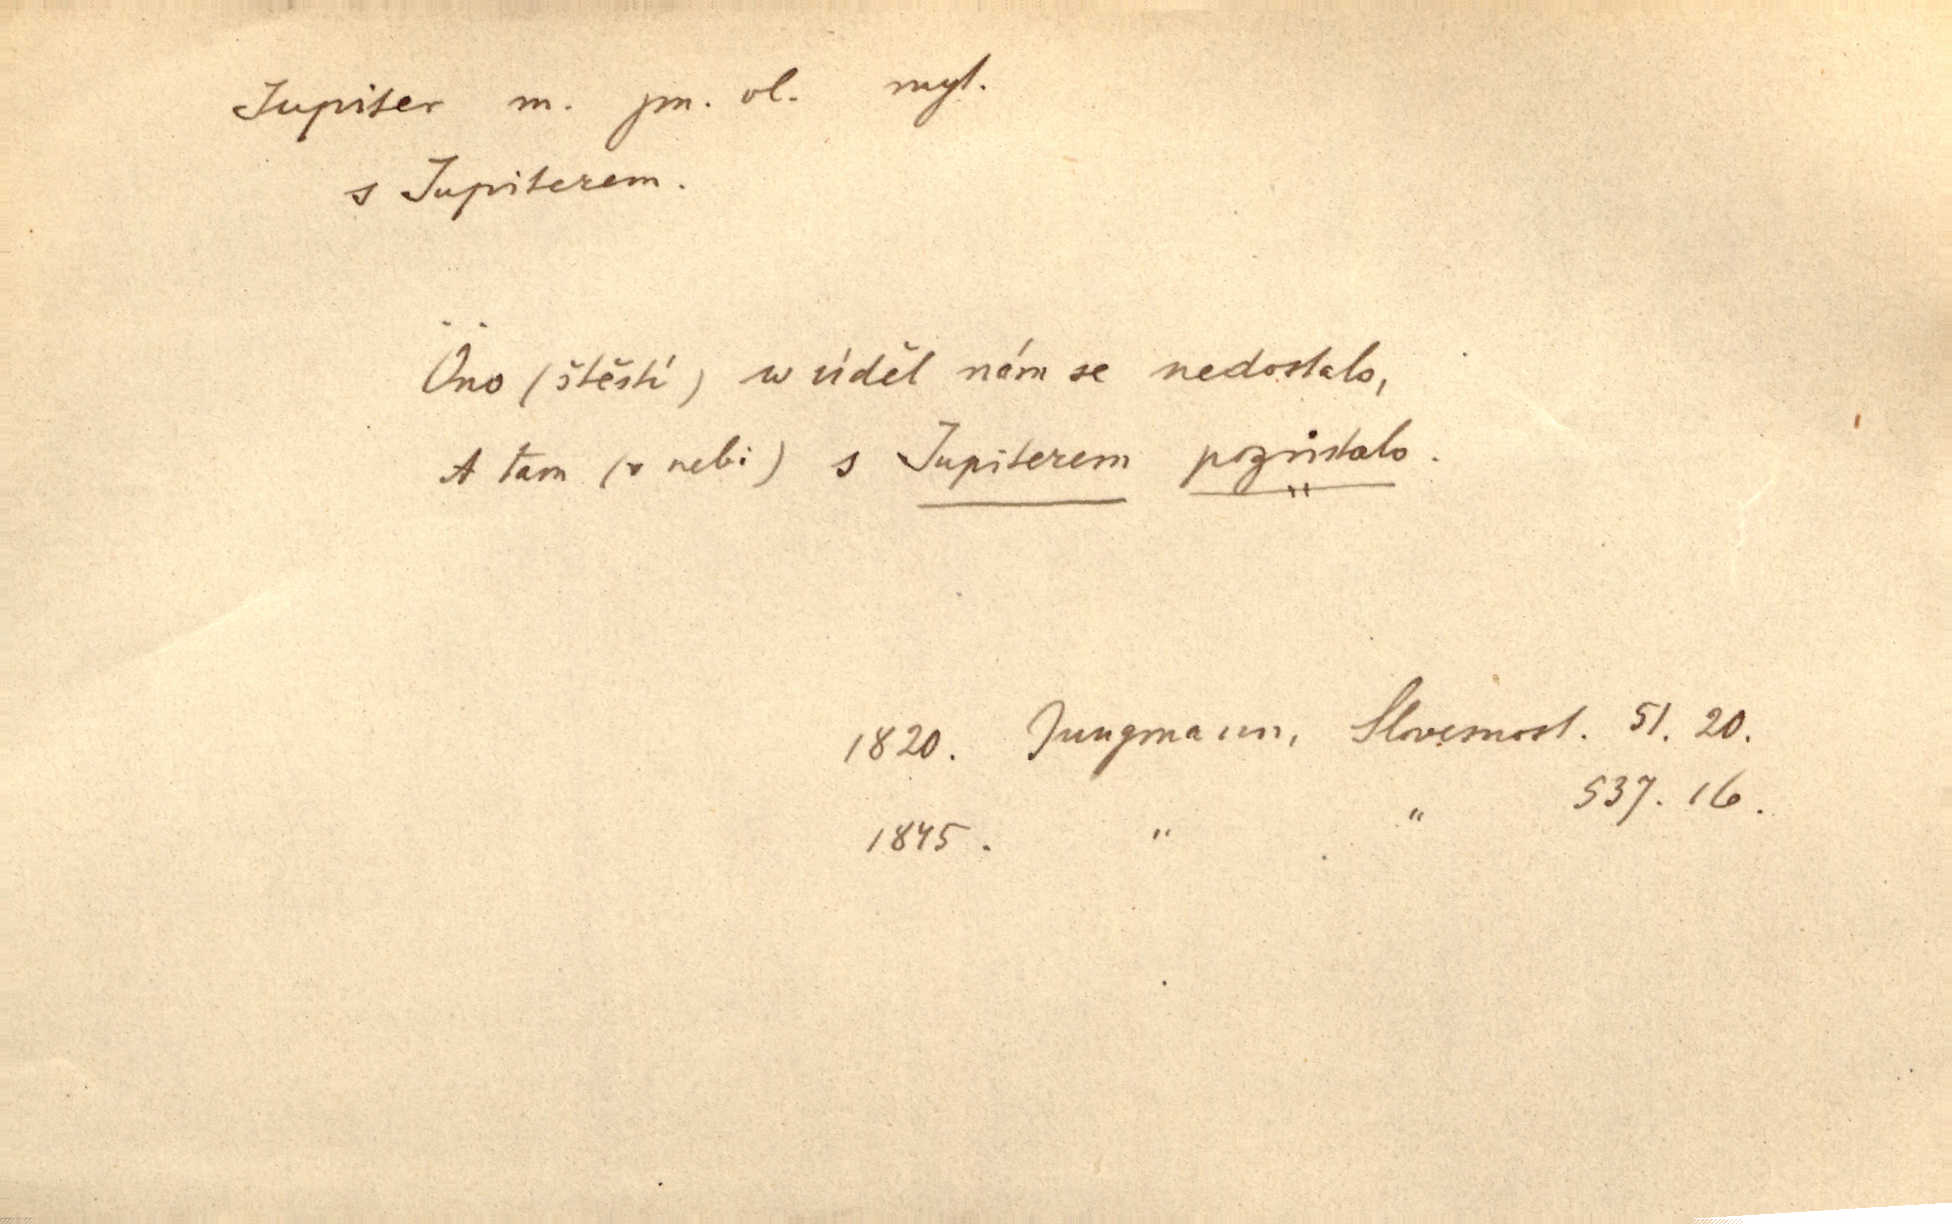 Jupiter m. jm. vl. myt.
s Jupiterem.
Ono (štěstí) w úděl nám se nedostalo,
A tam (v nebi) s Jupiterem pozůstalo.
1820. Jungmann, Slovesnost. 51. 20.
1845. " " 537. 16.